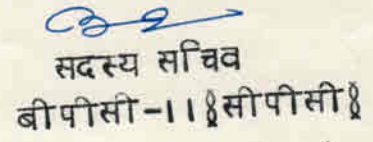 सदस्य सचिव
बीपीसी-11 (सीपीसी)